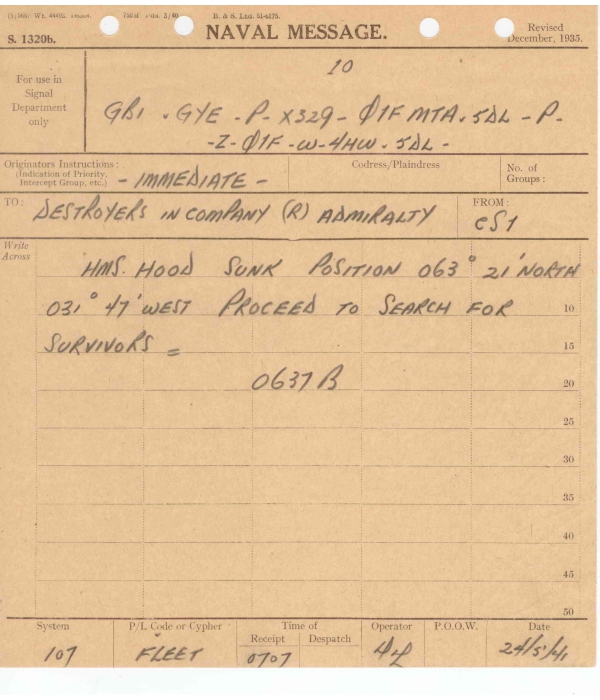 R. & S. Ltd. 51-4275.
S. 1320b.
NAVAL MESSAGE.
Revised
December, 1935.
10
For use in
Signal
Department
only
GBI . GYE - P - X329 - Ø1F MTA . 5ΔL - P -
- Z - Ø1F - W - 4HW . 5ΔL -
Originators Instructions :
(Indication of Priority,
Intercept Group, etc.)
- IMMEDIATE -
Codress/Plaindress
No. of
Groups :
TO:
DESTROYERS IN COMPANY (R) ADMIRALTY
FROM:
CS1
Write
Across
HMS. HOOD SUNK POSITION 063° 21' NORTH
031° 47' WEST PROCEED TO SEARCH FOR
10
SURVIVORS =
15
0637B
20
25
30
35
40
45
50
System
P/L Code or Cypher
Time of
Receipt
Despatch
Operator
P.O.O.W.
Date
107
FLEET
0707
24/5/41